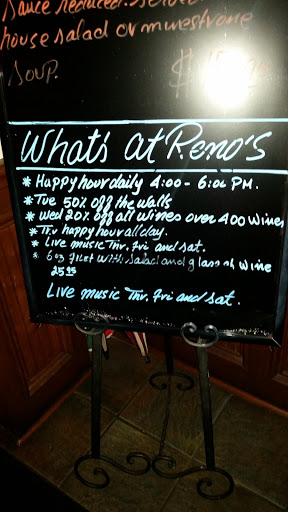 sauce reduced. served
house salad or minestrone
soup.
What's at Reno's
* Happy hour daily 4:00 - 6:00 PM.
* Tue 50% off the walls
* Wed 20% off all wines over 400 wines
* Thr. happy hour all day.
* Live music Thr, fri and sat.
* 6 oz filet with salad and glass of wine
25.95
Live music Thr, fri and sat.